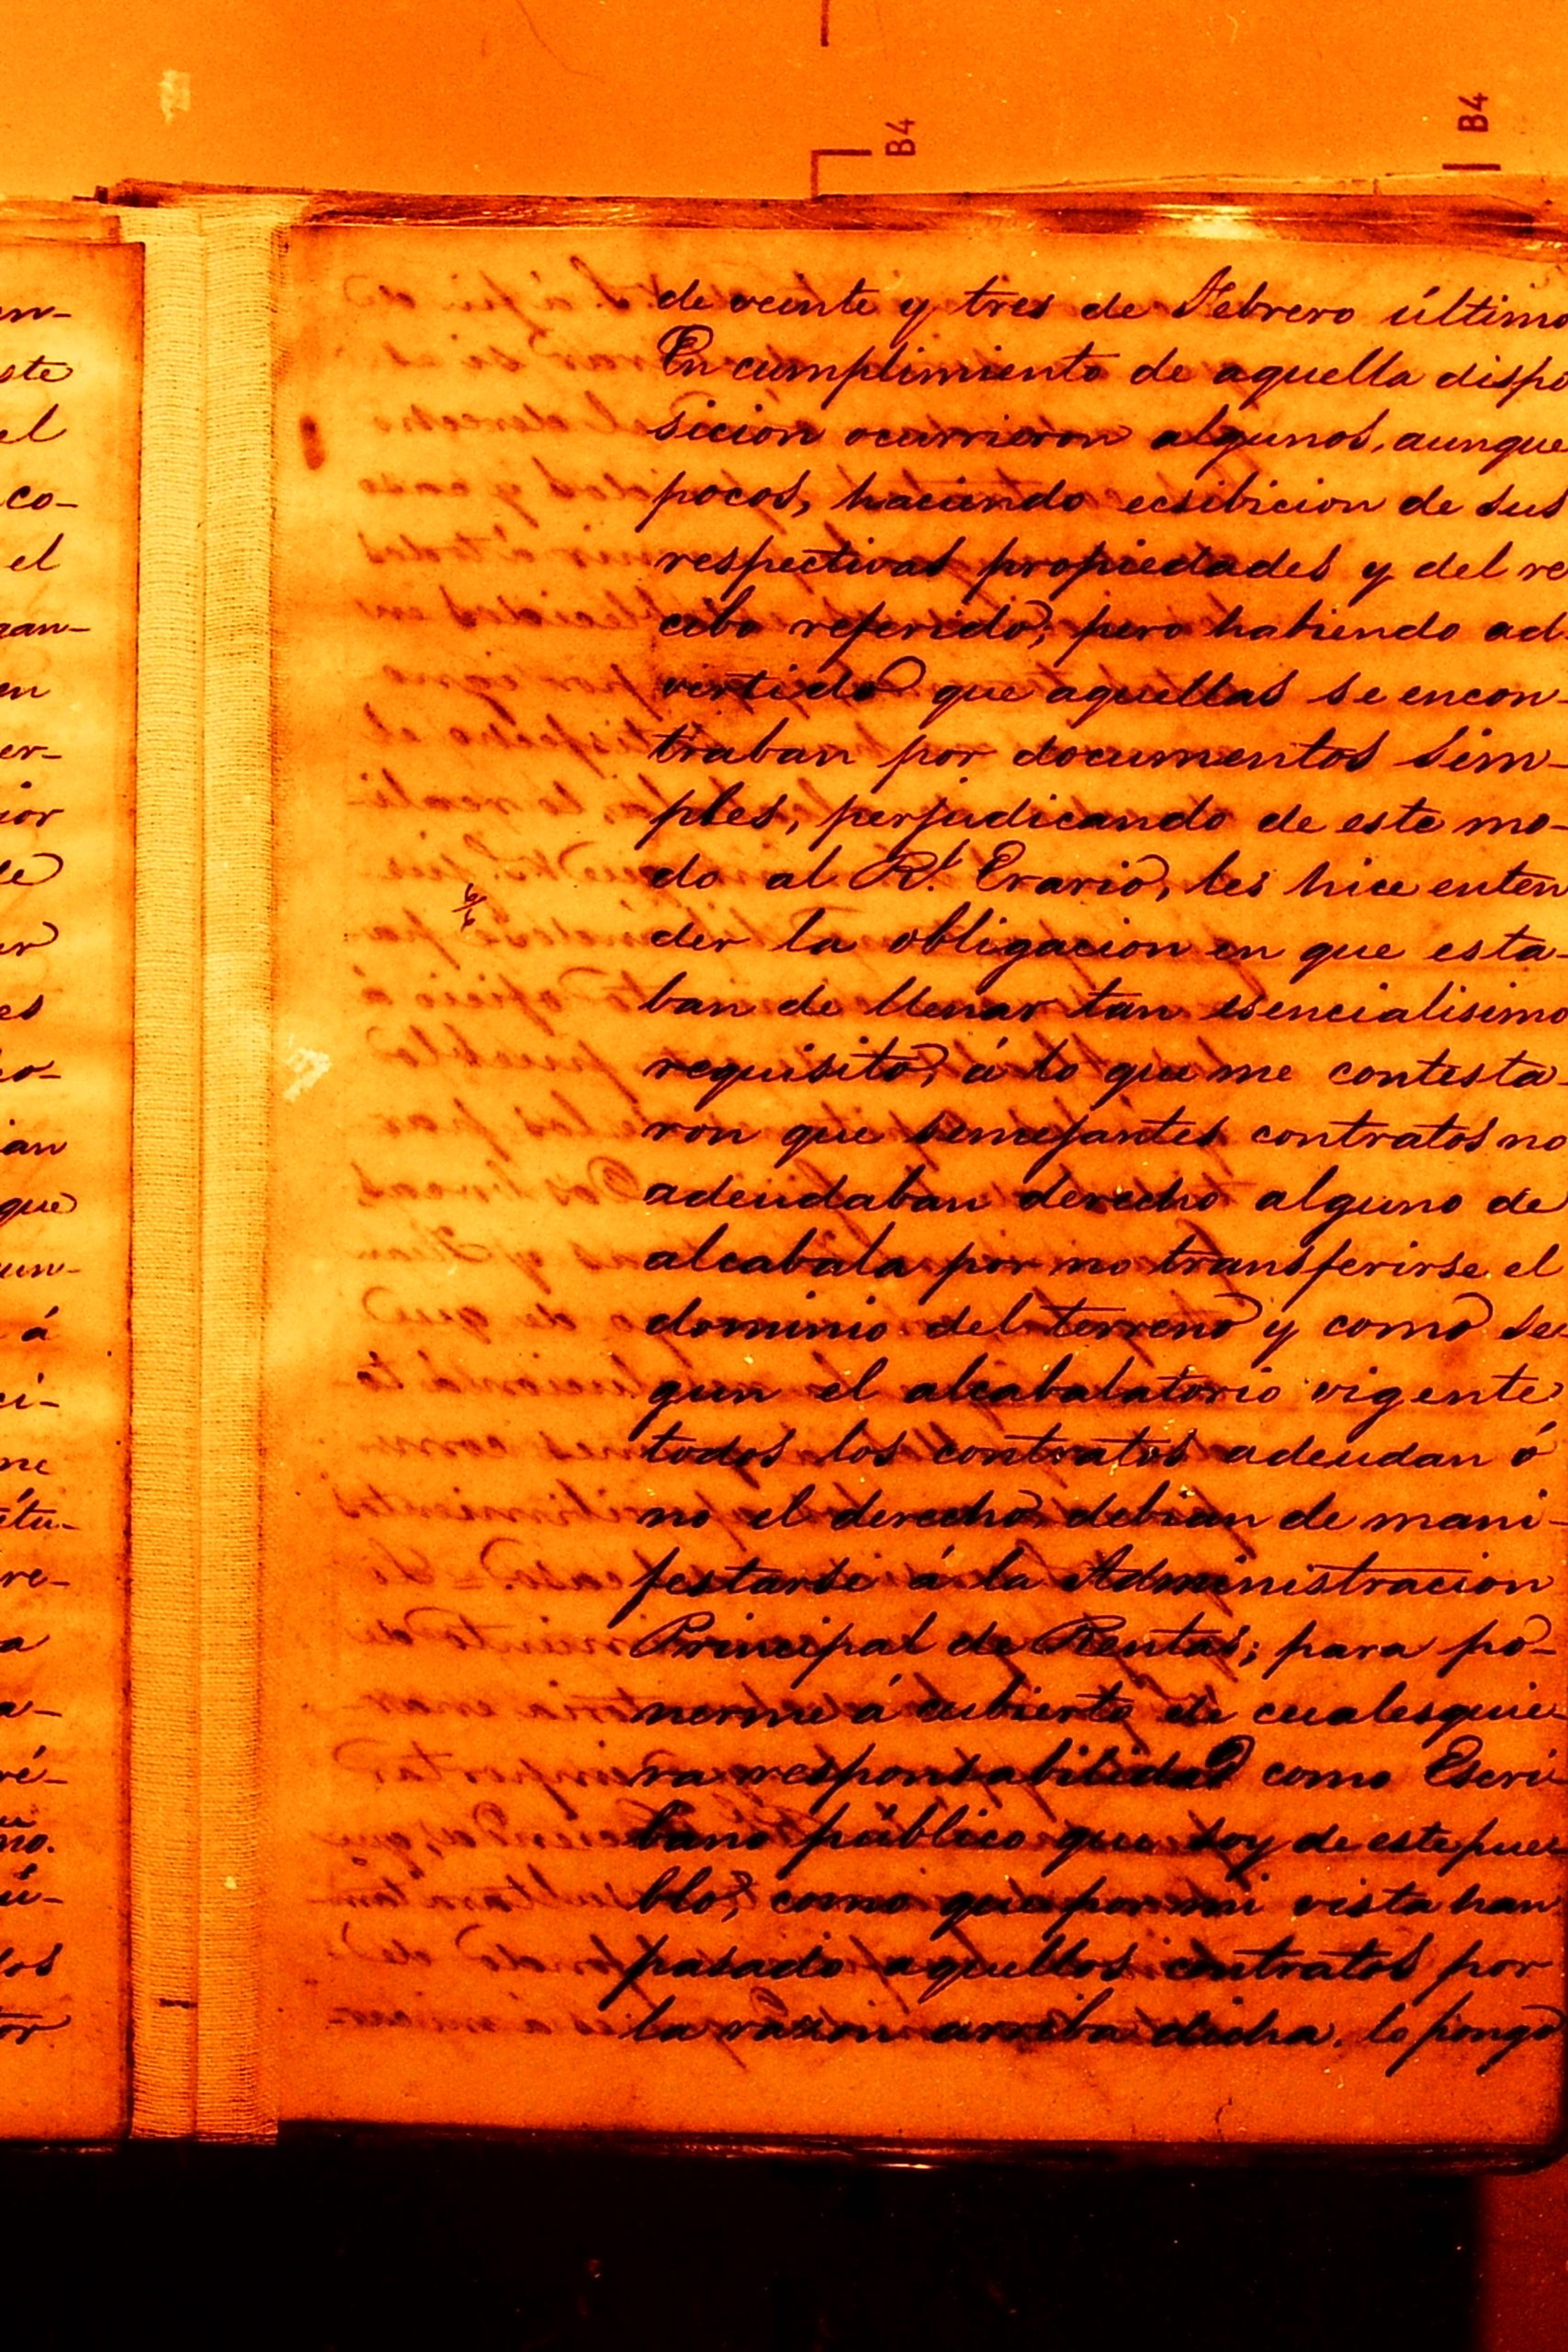 B4
B4
n-
ste
el
co-
el
en
er-
ior
de
er
es
ho-
ian
que
un-
á
ci-
me
re-
a
a-
ré-
no.
ú-
los
or
de veinte y tres de Febrero último
En cumplimiento de aquella dispo
sicion ocurrieron algunos, aunque
pocos, haciendo ecsibicion de sus
respectivas propiedades y del re
cibo referido; pero habiendo ad
vertido que aquellas se encon-
traban por documentos sim-
ples, perjudicando de este mo-
do al Rl. Erario, les hice enten
der la obligacion en que esta-
ban de llenar tan esencialisimo
requisito, á lo que me contesta-
ron que semejantes contratos no
adeudaban derecho alguno de
alcabala por no transferirse el
dominio del terreno y como se
gun el alcabalatorio vigente
todos los contratos adeudan ó
no el derecho, debian de mani-
festarse á la Administracion
Principal de Rentas; para po-
nerme á cubierto de cualesquie-
ra responsabilidad como Escri
bano público que soy de este pue
blo, como que por mi vista han
pasado aquellos contratos por
la razon arriba dicha, lo pongo